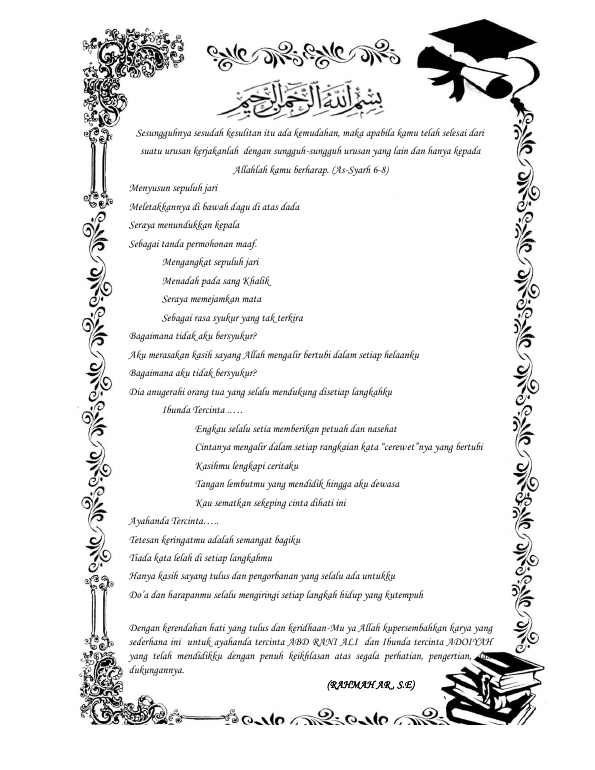 بسم الله الرحمن الرحيم
Sesungguhnya sesudah kesulitan itu ada kemudahan, maka apabila kamu telah selesai dari
suatu urusan kerjakanlah dengan sungguh-sungguh urusan yang lain dan hanya kepada
Allahlah kamu berharap. (As-Syarh 6-8)
Menyusun sepuluh jari
Meletakkannya di bawah dagu di atas dada
Seraya menundukkan kepala
Sebagai tanda permohonan maaf.
Mengangkat sepuluh jari
Menadah pada sang Khalik
Seraya memejamkan mata
Sebagai rasa syukur yang tak terkira
Bagaimana tidak aku bersyukur?
Aku merasakan kasih sayang Allah mengalir bertubi dalam setiap helaanku
Bagaimana aku tidak bersyukur?
Dia anugerahi orang tua yang selalu mendukung disetiap langkahku
Ibunda Tercinta .….
Engkau selalu setia memberikan petuah dan nasehat
Cintanya mengalir dalam setiap rangkaian kata “cerewet”nya yang bertubi
Kasihmu lengkapi ceritaku
Tangan lembutmu yang mendidik hingga aku dewasa
Kau sematkan sekeping cinta dihati ini
Ayahanda Tercinta…..
Tetesan keringatmu adalah semangat bagiku
Tiada kata lelah di setiap langkahmu
Hanya kasih sayang tulus dan pengorbanan yang selalu ada untukku
Do’a dan harapanmu selalu mengiringi setiap langkah hidup yang kutempuh
Dengan kerendahan hati yang tulus dan keridhaan-Mu ya Allah kupersembahkan karya yang
sederhana ini untuk ayahanda tercinta ABD RANI ALI dan Ibunda tercinta ADOIYAH
yang telah mendidikku dengan penuh keikhlasan atas segala perhatian, pengertian,
dukungannya.
(RAHMAH AR., S.E)